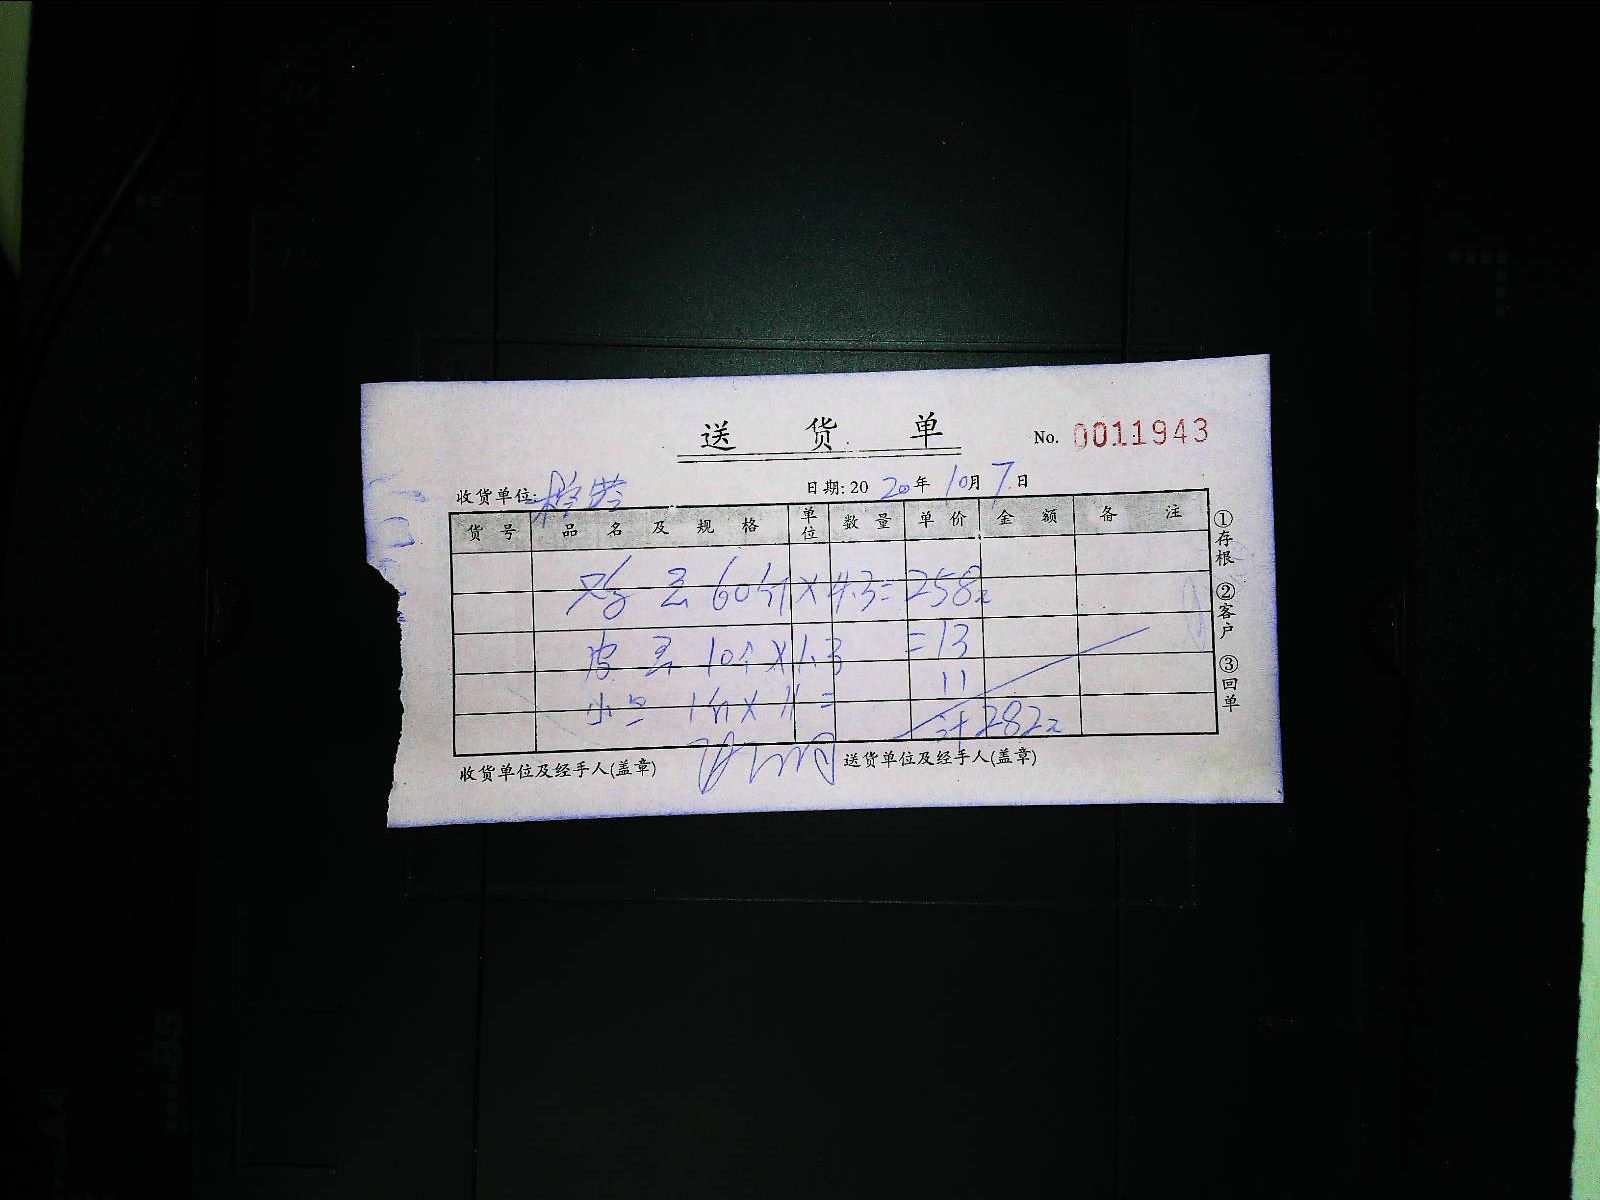 送货单 No. 0011943
收货单位: 日期: 20 20年 10月 7日
货号 品名及规格 单位 数量 单价 金额 备注
鸡蛋 60个 × 4.3 = 258元
皮蛋 10个 × 1.3 = 13
1个 × 11 = 11
计 282元
收货单位及经手人(盖章) 送货单位及经手人(盖章)
①存根 ②客户 ③回单